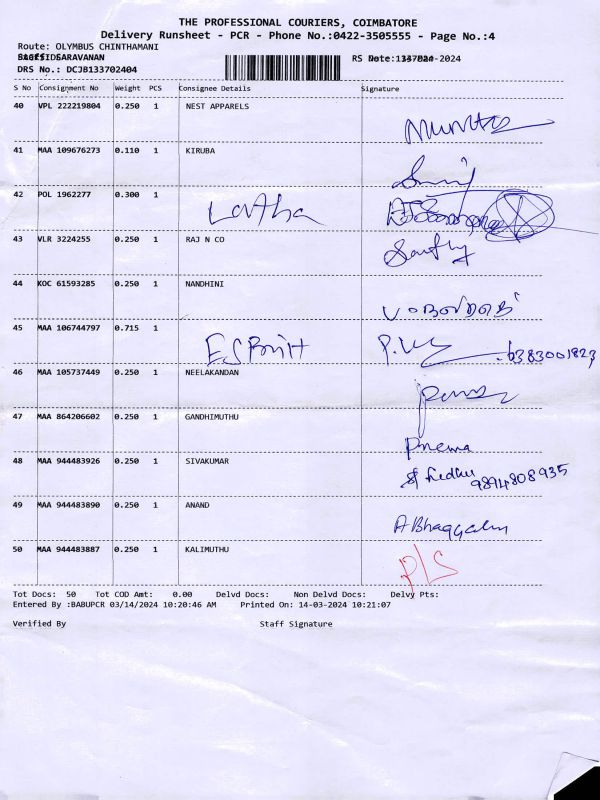 THE PROFESSIONAL COURIERS, COIMBATORE
Delivery Runsheet - PCR - Phone No.:0422-3505555 - Page No.:4
Route: OLYMBUS CHINTHAMANI
SARAVANAN
DRS No.: DCJB133702404
S No Consignment No Weight PCS Consignee Details Signature
40 VPL 222219804 0.250 1 NEST APPARELS
41 MAA 109676273 0.110 1 KIRUBA
42 POL 1962277 0.300 1 Latha
43 VLR 3224255 0.250 1 RAJ N CO
44 KOC 61593285 0.250 1 NANDHINI
45 MAA 106744797 0.715 1 6383001823
46 MAA 105737449 0.250 1 NEELAKANDAN
47 MAA 864206602 0.250 1 GANDHIMUTHU
Prema
48 MAA 944483926 0.250 1 SIVAKUMAR 9894808935
49 MAA 944483890 0.250 1 ANAND
50 MAA 944483887 0.250 1 KALIMUTHU
Tot Docs: 50 Tot COD Amt: 0.00 Delvd Docs: Non Delvd Docs: Delvy Pts:
Entered By :BABUPCR 03/14/2024 10:20:46 AM Printed On: 14-03-2024 10:21:07
Verified By Staff Signature